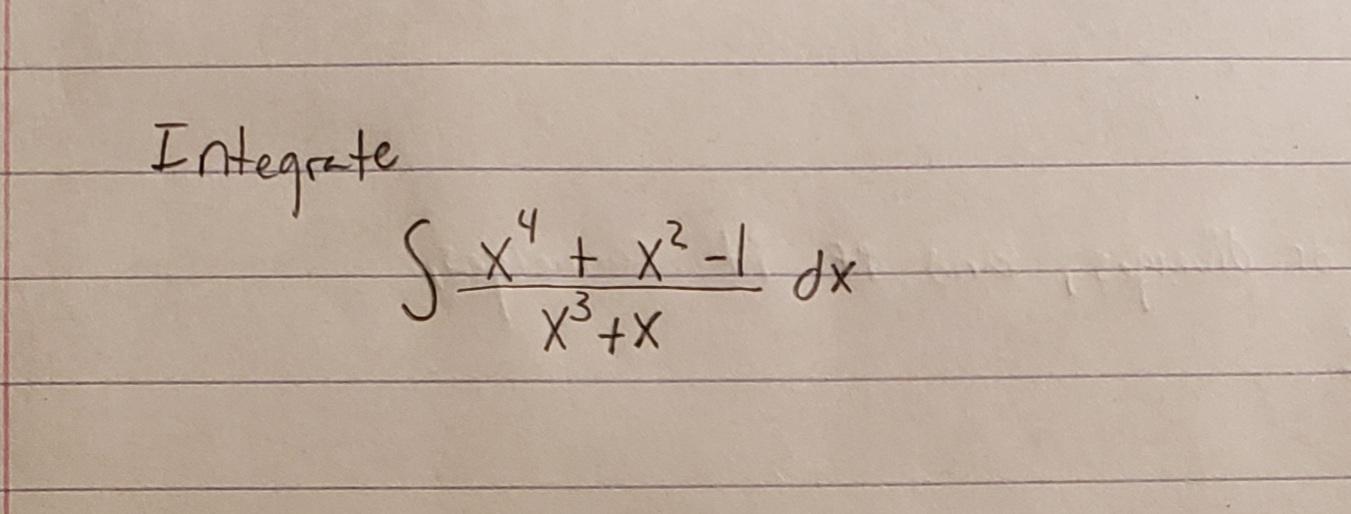 Integrate
∫ (x⁴ + x² - 1)/(x³ + x) dx